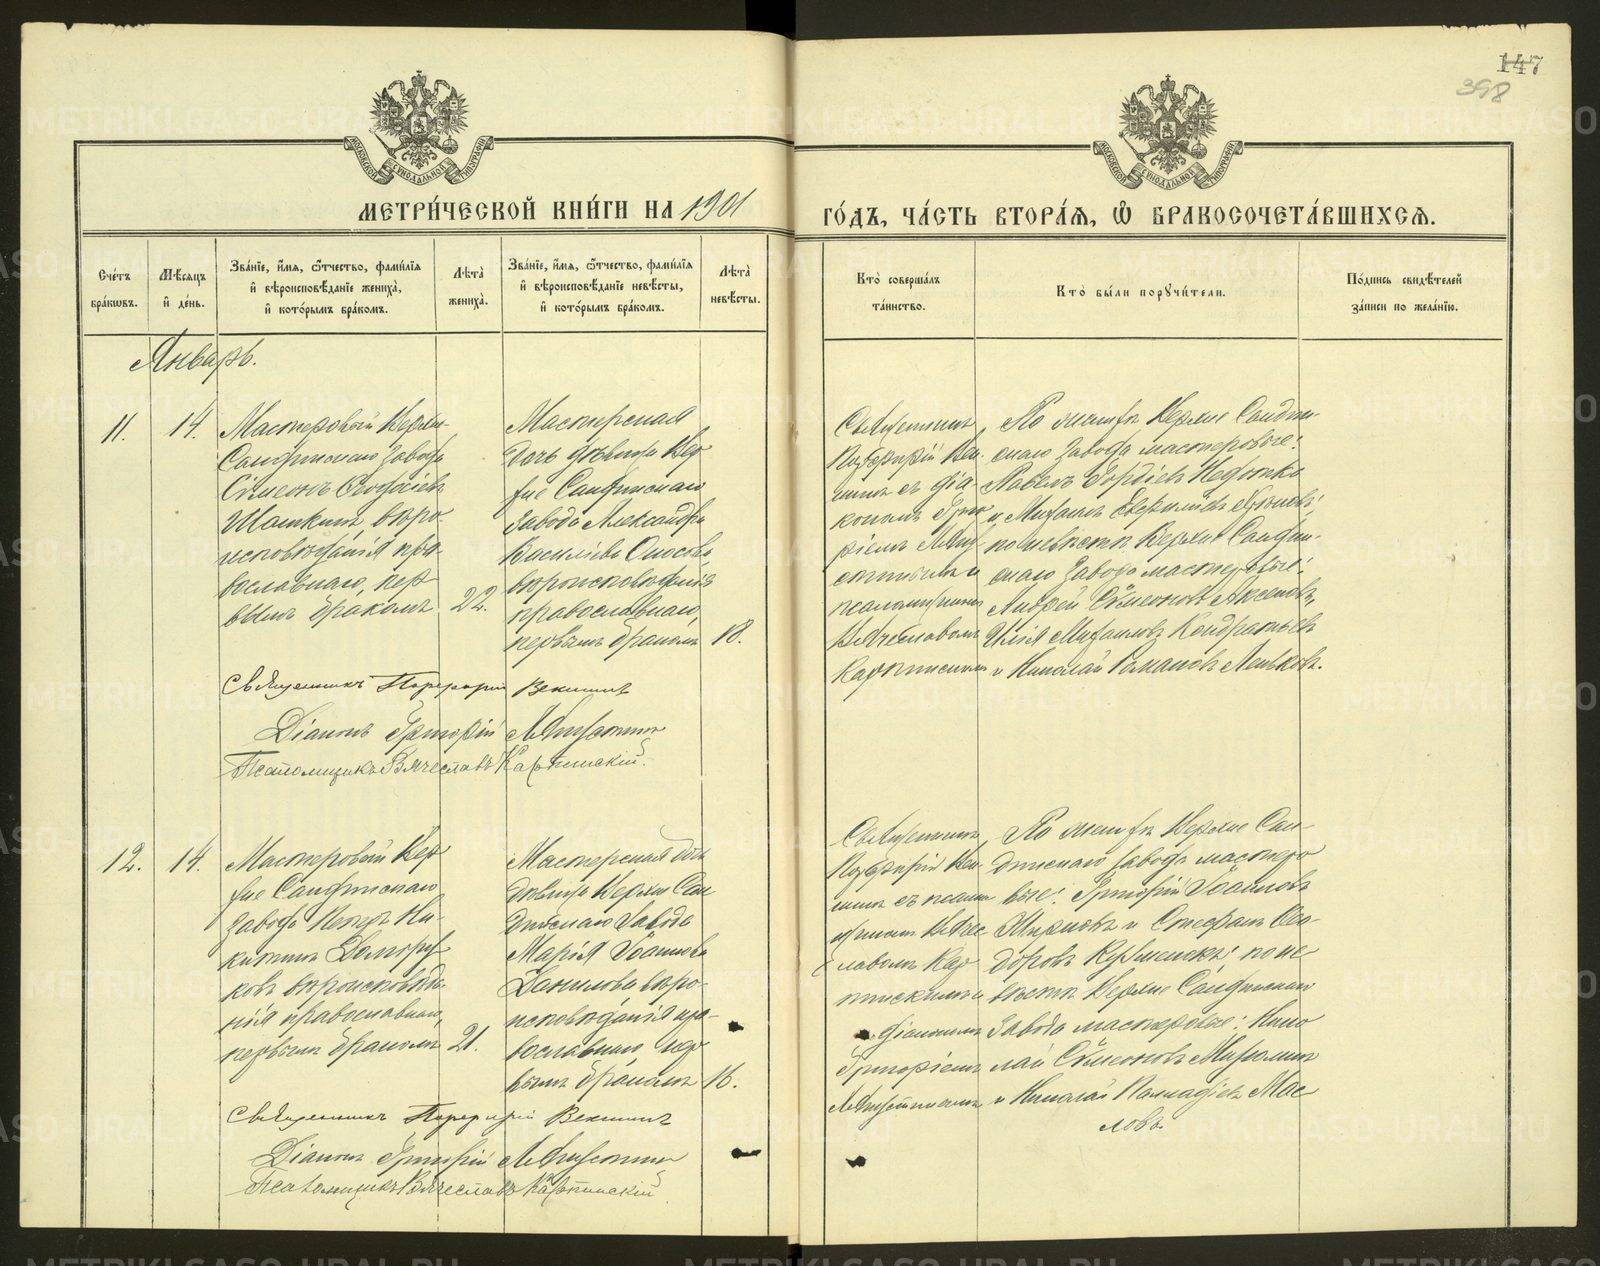 147
398
МЕТРИ́ЧЕСКОЙ КНИ́ГИ НА 1901
ГО́ДЪ, ЧА́СТЬ ВТОРА́Я, Ѡ҆ БРАКОСОЧЕТА́ВШИХСЯ.
Сче́тъ бра́ковъ.
Мѣ́сяцъ и҆ де́нь.
Зва́нїе, и҆́мя, ѻ҆́тчество, фами́лїя и҆ вѣроисповѣ́данїе жениха̀, и҆ кото́рымъ бра́комъ.
Лѣ́та жениха̀.
Зва́нїе, и҆́мя, ѻ҆́тчество, фами́лїя и҆ вѣроисповѣ́данїе невѣ́сты, и҆ кото́рымъ бра́комъ.
Лѣ́та невѣ́сты.
Кто̀ соверша́лъ та́инство.
Кто̀ бы́ли поручи́тели.
По́дпись свидѣ́телей за́писи по жела́нїю.
Январь.
11.
14.
Мастеровый Верхне-
Салдинскаго Завода
Сѵмеонъ
вѣро-
исповѣданія пра-
вославнаго, пер
вымъ бракомъ
22.
Мастерская
дочь дѣвица Вер
хне Салдинскаго
Завода Александра
Василіева
вѣроисповѣданія
православнаго,
первымъ бракомъ
18.
Священникъ
Порфирій Ве-
съ діа-
кономъ Григо
ріемъ
и
псаломщикомъ
Вячеславомъ
Карпинскимъ
По женихѣ Верхне Салдин-
скаго Завода мастеровые:
Павелъ Гордіевъ
и Михаилъ
по невѣстѣ Верхне Салдин-
скаго Завода мастеровые:
Андрей Сѵмеоновъ Аксеновъ,
Илія Михаиловъ Кондратьевъ
и Николай Романовъ
Священникъ Порфирій Векшинъ
Діаконъ Григорій
Псаломщикъ Вячеславъ Карпинскій.
12.
14.
Мастеровый Вер
хне Салдинскаго
Завода Петръ Ни-
китинъ Долгору
ковъ вѣроисповѣда-
нія православнаго,
первымъ бракомъ
21.
Мастерская дочь
дѣвица Верхне Сал
динскаго Завода
Марія Іоаннова
Данилова вѣро-
исповѣданія пра-
вославнаго, пер
вымъ бракомъ
16.
Священникъ
Порфирій Век-
шинъ съ псалом
щикомъ Вяче-
славомъ Кар
пинскимъ и
діакономъ
Григоріемъ
По женихѣ Верхне Сал-
динскаго Завода мастеро
вые: Григорій Іоанновъ
и Стефанъ Ѳео-
доровъ по не-
вѣстѣ Верхне Салдинскаго
Завода мастеровые: Нико
лай Сѵмеоновъ
и Николай Палладіевъ Мас
ловъ.
Священникъ Порфирій Векшинъ
Діаконъ Григорій
Псаломщикъ Вячеславъ Карпинскій
METRIKI.GASO-URAL.RU